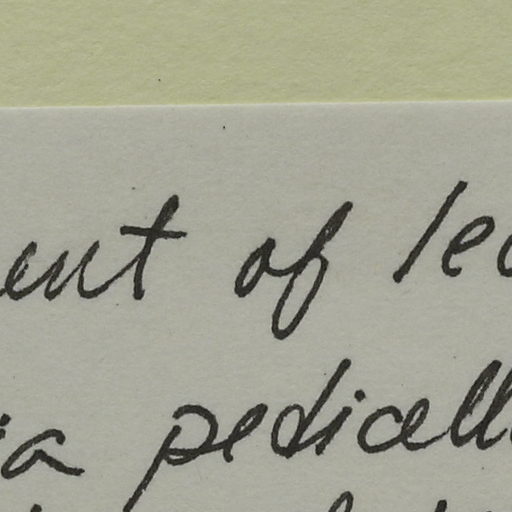 ent of lea
ia pedicell